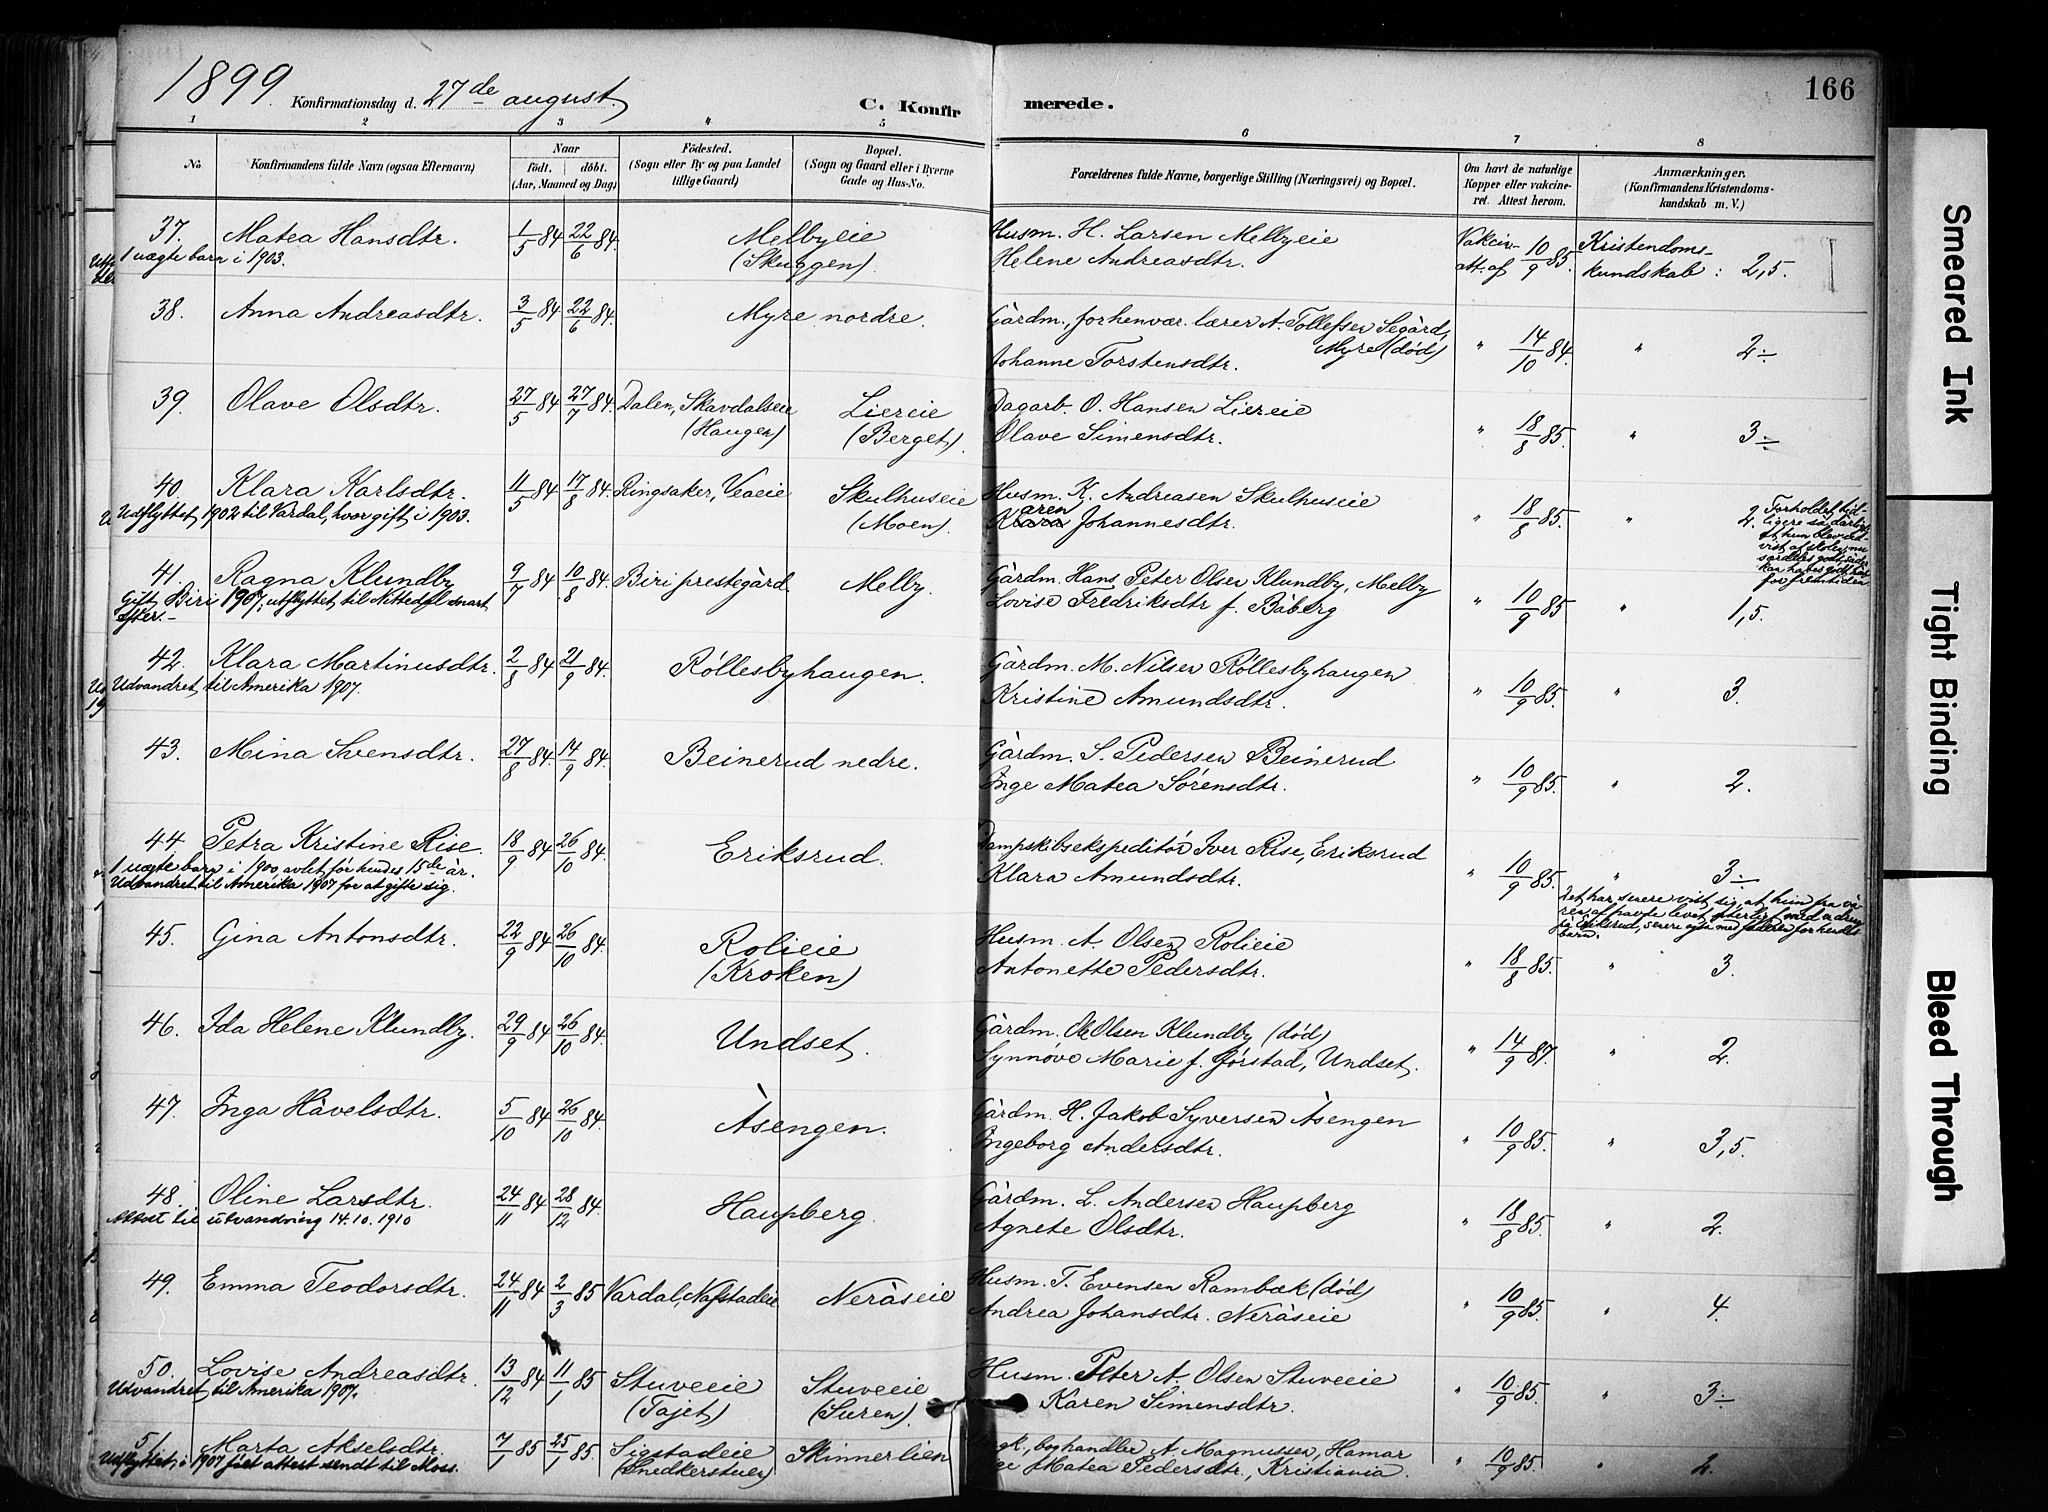 1899. Konfirmationsdag d. 27de august. C. Konfirmerede. 166
1 2 3 4 5 6 7 8
No Konfirmandens fulde Navn (ogsaa Efternavn) Naar født. døbt. (Aar, Maaned og Dag) Fødested. (Sogn eller By og paa Landet tillige Gaard) Bopæl. (Sogn og Gaard eller i Byerne Gade og Hus-No. Forældrenes fulde Navne, borgerlige Stilling (Næringsvei) og Bopæl. Om havt de naturlige Kopper eller vakcineret. Attest herom. Anmærkninger. (Konfirmandens Kristendomskundskab m. V.)
37. Matea Hansdtr. 1/5 84 22/6 84. Melbyeie (Skuggen). Husm. H. Larsen Melbyeie
Helene Andreasdtr. Vakcin. att. af 10/9 85. Kristendomskundskab : 2,5.
1 uægte barn i 1903.
38. Anna Andreasdtr. 3/5 84 22/6 84. Myre nordre. Gårdm., forhenvær. lærer A. Tollefsen Segård, Myre (død)
Johanne Torstensdtr. " 14/10 84. " 2÷
39. Olave Olsdtr. 27/5 84 27/7 84. Dalen, Skavdalseie (Haugen) Liereie (Berget). Dagarb. O. Hansen Liereie
Olave Simensdtr. " 18/8 85. " 3÷
40. Klara Karlsdtr. 11/5 84 17/8 84. Ringsaker, Veaeie Skulhuseie (Moen). Husm. K. Andreasen Skulhuseie
Karen Johannesdtr. " 18/8 85. " 2.
Udflyttet 1902 til Vardal, hvor gift i 1903.
41. Ragna Klundby 9/7 84 10/8 84. Biri prestegård. Melby. Gårdm. Hans Peter Olsen Klundby, Melby
Lovise Fredriksdtr f. Båberg " 10/9 85 " 1,5.
Gift, Biri 1907; utflyttet til Nittedal snart efter.-
42. Klara Martinusdtr. 2/8 84 21/9 84. Røllesbyhaugen. Gårdm. M. Nilsen Røllesbyhaugen
Kristine Amundsdtr. " 10/9 85. " 3.
Udvandret til Amerika 1907.
43. Mina Svensdtr. 27/8 84 14/9 84. Beinerud nedre. Gårdm. S. Pedersen Beinerud
Inge Matea Sørensdtr. " 10/9 85. " 2.
44. Petra Kristine Rise. 18/9 84 26/10 84. Eriksrud. Dampskibsekspeditør Iver Rise, Eriksrud
Klara Amundsdtr. " 10/9 85. " 3÷
1 uægte barn i 1900 avlet før hendes 15de år.
Udvandret til Amerika 1907 for at gifte sig.
45. Gina Antonsdtr. 22/9 84 26/10 84. Rolieie (Kroken) Husm. A. Olsen Rolieie
Antonette Pedersdtr. " 18/8 85. " 3.
46. Ida Helene Klundby. 29/9 84 26/10 84. Undset. Gårdm. Ole Olsen Klundby (død)
Synnøve Marie f. Jørstad, Undset. " 14/9 87. " 2.
47. Inga Håvelsdtr. 5/10 84 26/10 84. Åsengen. Gårdm. H. Jakob Syversen Åsengen
Ingeborg Andersdtr. " 10/9 85. " 3,5.
48. Oline Larsdtr. 24/11 84 28/12 84. Haupberg. Gårdm. L. Andersen Haupberg
Agnete Olsdtr. " 18/8 85. " 2.
Attest til utvandring 14.10.1910
49. Emma Teodorsdtr. 24/11 84 2/3 85 Vardal, Nafstadeie Neråseie Husm. T. Evensen Rambæk (død)
Andrea Johansdtr. Neråseie " 10/9 85. " 4.
50. Lovise Andreasdtr. 13/12 84 11/1 85 Stuveeie (Tajet) Stuveeie (Sveen). Husm. Peter A. Olsen Stuveeie
Karen Simensdtr. " 10/9 85. " 3÷
Udvandret til Amerika 1907.
51. Marta Akselsdtr. 7/1 85 25/1 85. Sigstadeie (Snedkerstuen) Skinnerlien Ungk., boghandler A. Magnussen, Hamar
Matea Pedersdtr., Kristiania. " 10/9 85. " 2.
Udflyttet, i 1907 fået attest sendt til Moss.
Smeared Ink
Tight Binding
Bleed Through